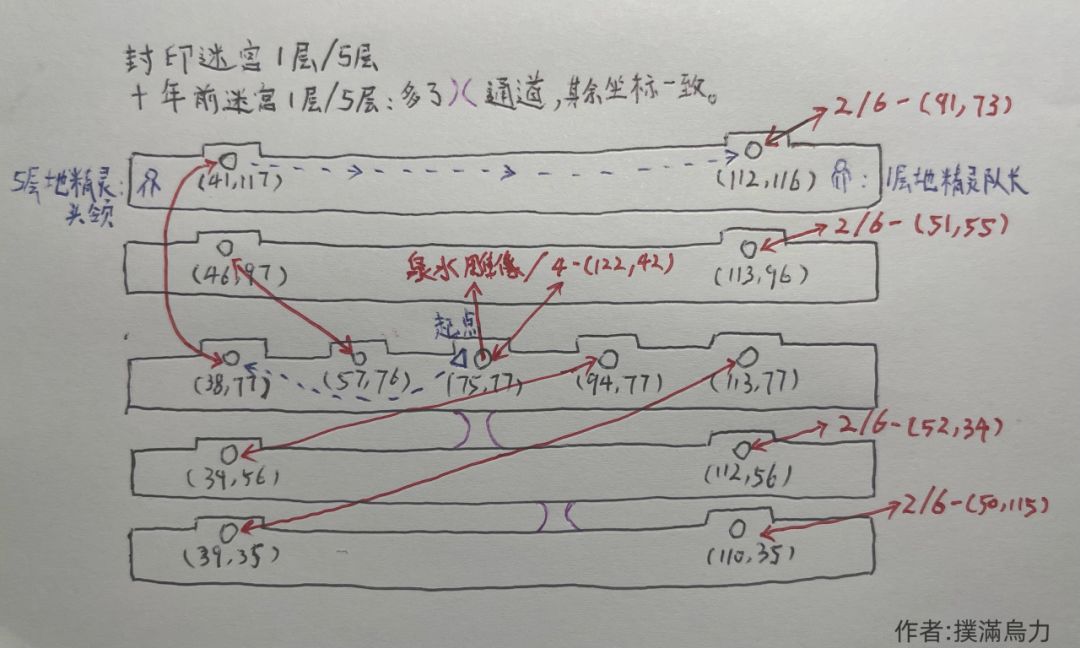 封印迷宫1层/5层
十年前迷宫1层/5层:多了)(通道,其余坐标一致。
2/6-(91,73)
5层地精灵:
头领
(41,117)
(112,116)
1层地精灵队长
2/6-(51,55)
(46,97)
泉水雕像/4-(122,42)
(113,96)
起点
(38,77)
(57,76)
(75,77)
(94,77)
(113,77)
2/6-(52,34)
(39,56)
(112,56)
2/6-(50,115)
(39,35)
(110,35)
作者:撲滿烏力